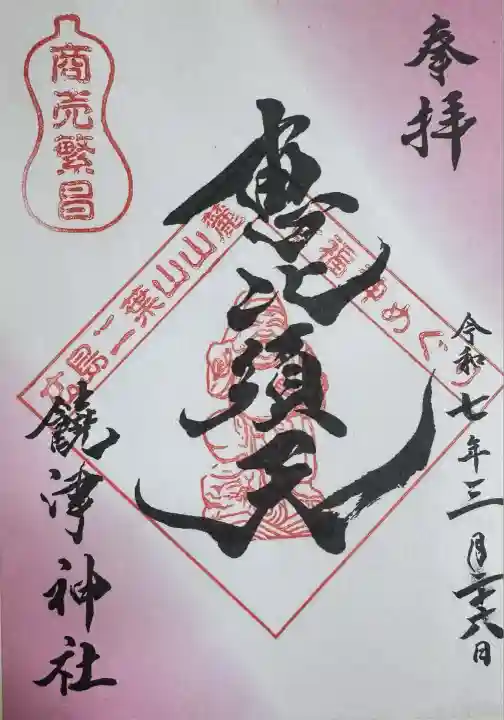 奉拝
令和七年三月二十六日
恵比須天
商売繁昌
二葉山山麓
福
めぐり
饒津神社